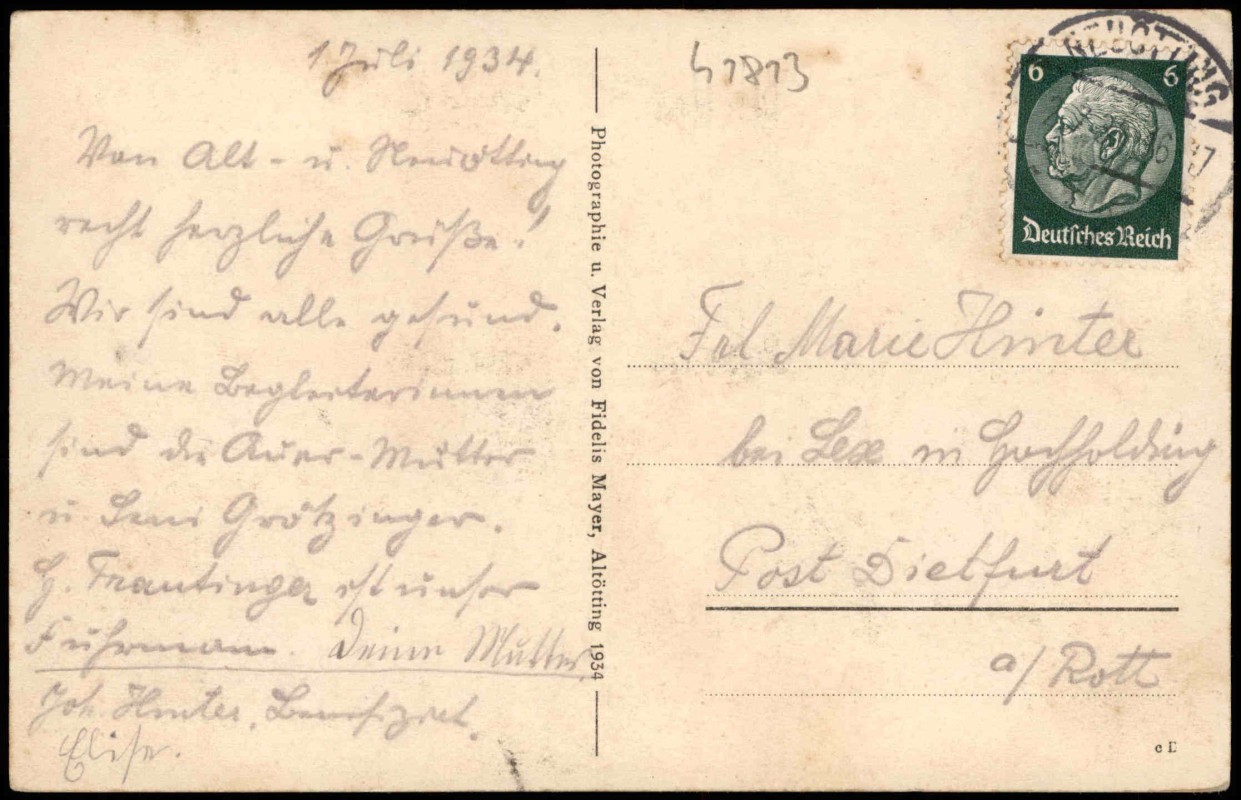 1 Juli 1934.
Von Alt- u. Neuötting
recht herzliche Grüße!
Wir sind alle gesund.
Meine Begleiterinnen
sind die Auer-Mutter
u. Leni Grötzinger.
H. Frautinger ist unser
Fuhrmann. Deine Mutter,
Joh. Hinter, Benefiziat.
Elise.
Photographie u. Verlag von Fidelis Mayer, Altötting 1934
41813
NEUÖTTING
6 6
Deutsches Reich
Frl Marie Hinter
bei Lex in Hochholding
Post Dietfurt
a/ Rott